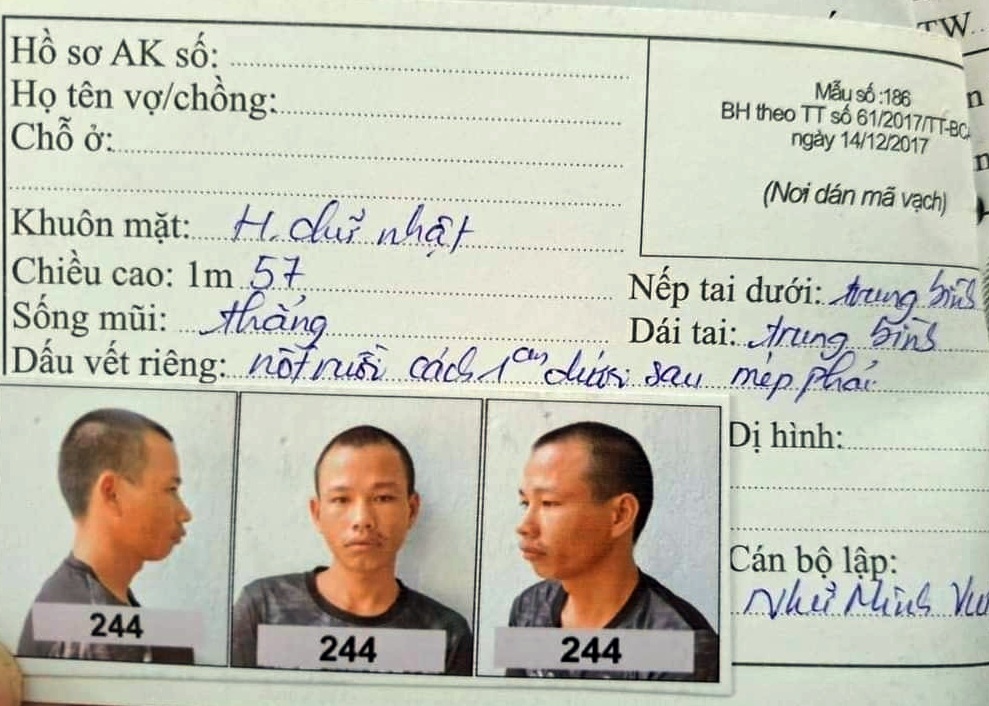 TW..
Hồ sơ AK số:
Họ tên vợ/chồng:
Chỗ ở:
Mẫu số :186
BH theo TT số 61/2017/TT-BCA
ngày 14/12/2017
(Nơi dán mã vạch)
Khuôn mặt: H. chữ nhật
Chiều cao: 1m 57
Nếp tai dưới: trung bình
Sống mũi: thẳng
Dái tai: trung bình
Dấu vết riêng: nốt ruồi cách 1cm dưới sau mép phải
Dị hình:
Cán bộ lập:
Như Minh
244
244
244